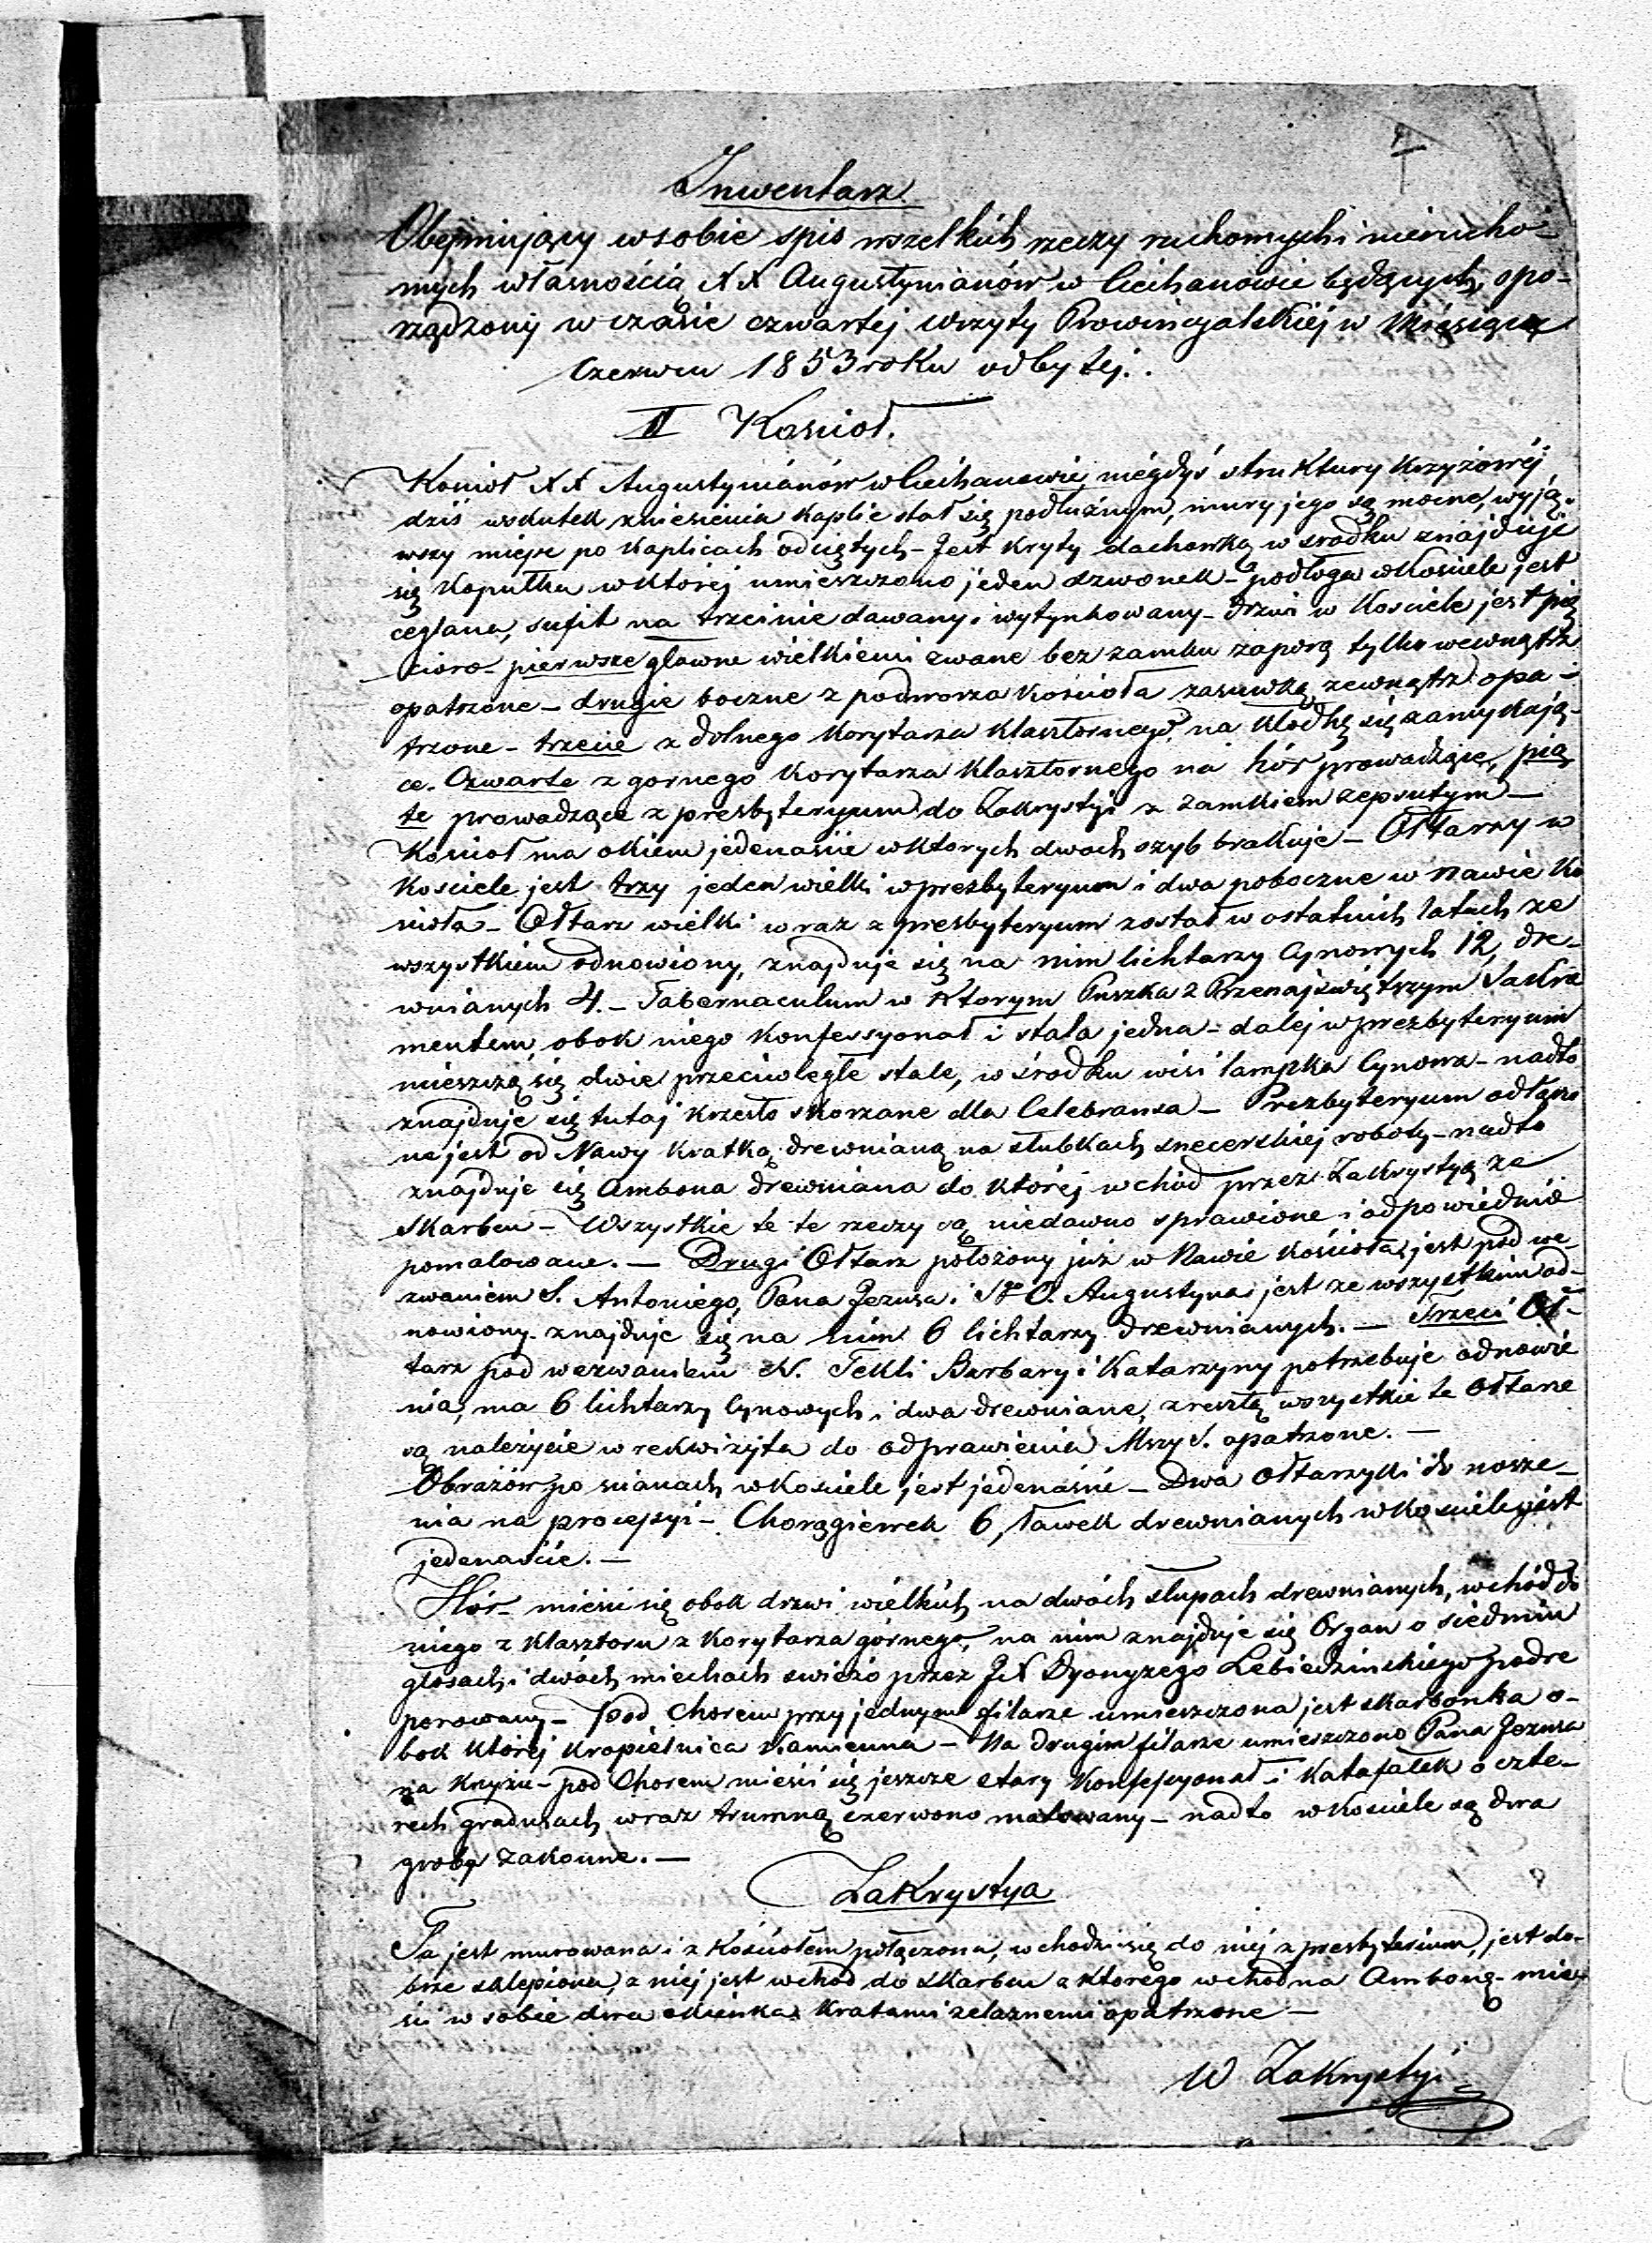 Inwentarz
Obejmujący w sobie spis wszelkich rzeczy ruchomych i nierucho-
mych własnością XX Augustynianów w Ciechanowie będących, spo-
rządzony w czasie czwartej wizyty Prowincyalskiej w Miesiącu
Czerwcu 1853 roku odbytej.
II Koscioł.
Kościoł XX Augustynianów w Ciechanowie, niegdyś struktury krzyżowéj,
dziś wskutek zniesienia kaplic stał się podłużnym, mury jego są mocne, wyją-
wszy miejsc po kaplicach odciętych - Jest kryty dachówką w srodku znajduje
się kopułka w której umieszczono jeden dzwonek - podłoga w Kościele jest
ceglana, sufit na trzcinie dawany i wytynkowany - Drzwi w Kosciele jest pię
cioro - pierwsze głowne wielkiemi zwane bez zamku zaporą tylko wewnątrz
opatrzone - drugie boczne z podworza kościoła zasuwką zewnątrz opa-
trzone - trzecie z dolnego korytarza klasztornego na kłodkę się zamykają-
ce. Czwarte z gornego korytarza klasztornego na hór prowadzące, pią
te prowadzące z presbyteryum do Zakrystyi z zamkiem zepsutym -
Kościoł ma okien jedenaście w ktorych dwoch szyb brakuje - Ołtarzy w
Kosciele jest trzy jeden wielki w prezbyteryum i dwa poboczne w nawie Ko
ścioła - Ołtarz wielki wraz z presbyteryum został w ostatnich latach ze
wszystkiem odnowiony, znajduje się na nim lichtarzy Cynowych 12, dre-
wnianych 4. - Tabernaculum w ktorym Puszka z Przenajświętszym Sakra
mentem, obok niego konfessyonał i stala jedna - dalej w prezbyteryum
mieszczą się dwie przeciwległe stale, w środku wisi lampka Cynowa - nadto
znajduje się tutaj krzesło skorzane dla Celebransa - Prezbyteryum odłączo
ne jest od Nawy kratką drewnianą na słubkach snecerskiej roboty - nadto
znajduje się Ambona drewniana do której wchód przez Zakrystyą ze
Skarbcu - Wszystkie te te rzeczy są niedawno sprawione i odpowiednio
pomalowane. - Drugi Ołtarz położony już w Nawie kościoła, jest pod we-
zwaniem S. Antoniego, Pana Jezusa i Sgo O. Augustyna jest ze wszystkim od-
nowiony - znajduje się na nim 6 lichtarzy drewnianych. - Trzeci Oł-
tarz pod wezwaniem S. Tekli Barbary i Katarzyny potrzebuje odnowie
nia, ma 6 lichtarzy Cynowych i dwa drewniane, zresztą wszystkie te Ołtarze
są należycie w rekwizyta do odprawienia Mszy S. opatrzone. -
Obrazów po scianach w kościele jest jedenaście - Dwa Ołtarzyki do nosze-
nia na procesyi - Chorągiewek 6, ławek drewnianych w kościele jest
jedenaście. -
Hór - mieści się obok drzwi wielkich na dwóch słupach drewnianych, wchód do
niego z klasztoru z korytarza górnego, na nim znajduje się Organ o siedmiu
głosach i dwóch miechach swieżo przez JX Dyonyzego Lebiedzinskiego zadre
porowany - Pod Chorem przy jednym filarze umieszczona jest skarbonka o-
bok której kropielnica kamienna - Na drugim filarze umieszczono Pana Jezusa
na krzyżu - pod Chorem mieści się jeszcze stary konfessyonał i katafalek o czte-
rech gradusach wraz trumną czerwono malowany - nadto w kościele są dwa
groby zakonne. -
Zakrystya
Ta jest murowana i z Kościołem połączona, wchodzi się do niej z presbyterium, jest do-
brze sklepiona, z niej jest wchod do skarbcu z ktorego wchod na Ambonę - mie-
ści w sobie dwa okienka kratami zelaznemi opatrzone -
W Zakrystyi